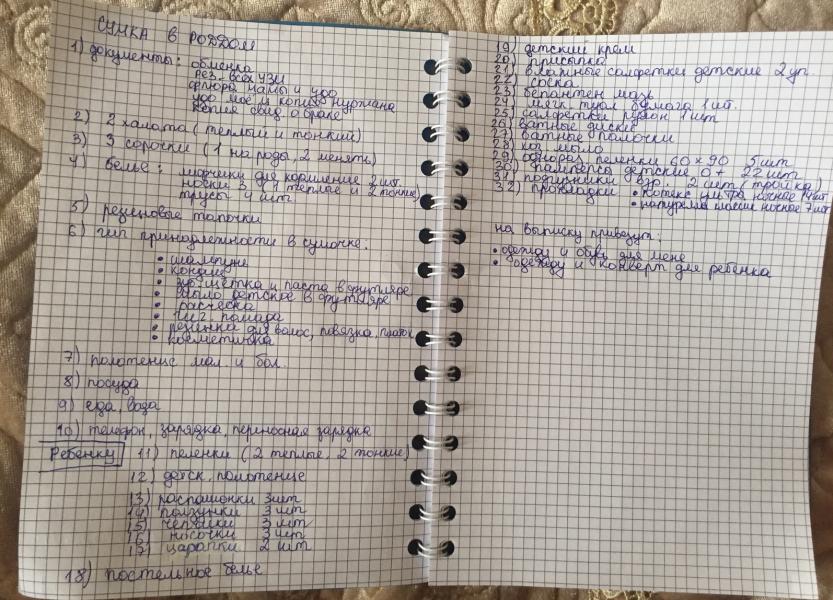 СУМКА В РОДДОМ
1) документы: обменка
рез. всех УЗИ
флюра мамы и
копия свид. о браке
2) 2 халата (теплый и тонкий)
3) 3 сорочки (1 на роды, 2 менять)
4) белье: для кормления 2 шт.
носки 3 (1 теплые и 2 тонкие)
трусы 4 шт
5) резиновые тапочки
6) гиг принадлежности в сумочке:
• шампунь
• кондиц
• зуб. щетка и паста в футляре
• мыло детское в футляре
• расческа
• гиг. помада
• резинка для волос, повязка, платок
• косметичка
7) полотенце мал. и бол.
8) посуда
9) еда, вода
10) телефон, зарядка, переносная зарядка
Ребенку 11) пеленки (2 теплые, 2 тонкие)
12) детск. полотенце
13) распашонки 3 шт
14) ползунки 3 шт
15) чепчики 3 шт
16) носочки 3 шт
17) царапки 2 шт
18) постельное белье
19) детский крем
20) присыпка
21) влажные салфетки детские 2 уп.
22) соска
23) бепантен мазь
24) мягк. туал бумага 1 шт.
25) салфетки рулон 1 шт
26) ватные диски
27) ватные палочки
28) хоз. мыло
29) однораз. пеленки 60 х 90 5 шт
30) памперсы детские 0+ 22 шт
31) подгузники взр. 2 шт (тройка)
32) прокладки • котекс ультра ночные
• натурелла макси ночные 7 шт
на выписку привезут:
• одежду и обувь для меня
• одежду и конверт для ребенка